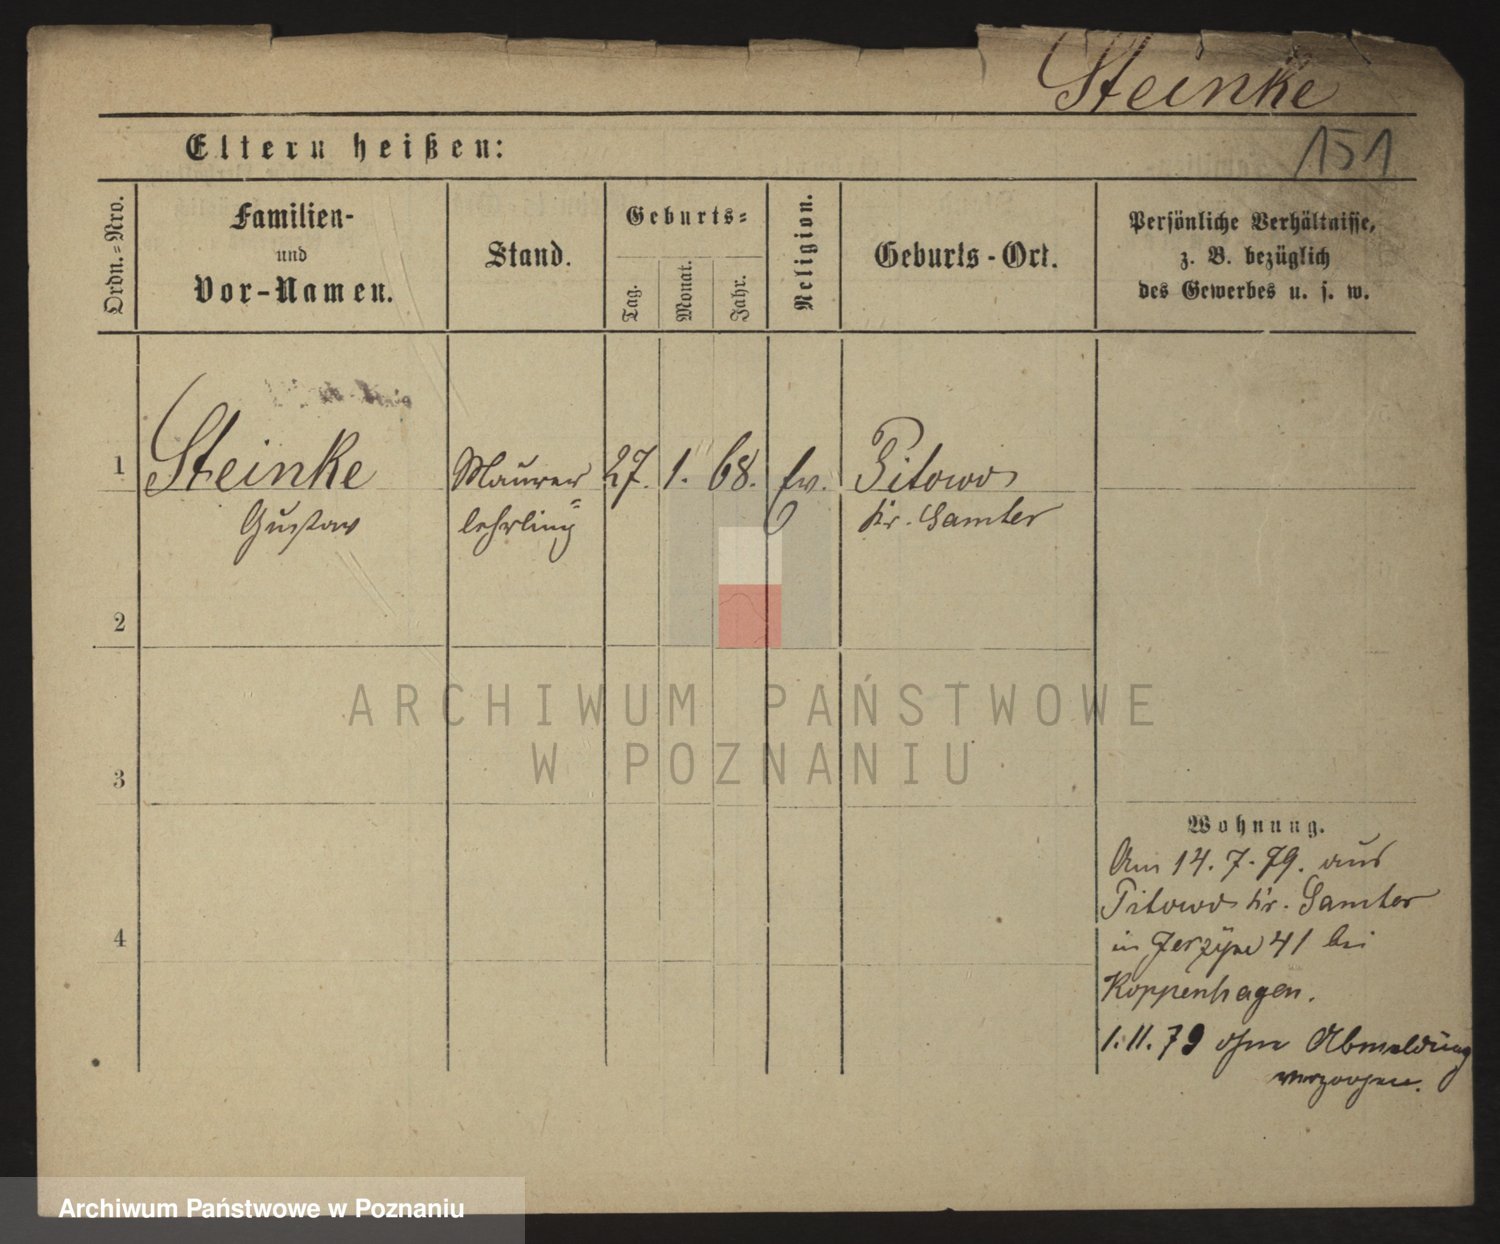 Steinke
151
Eltern heißen:
Ordn.=Nro.
Familien-
und
Vor-Namen.
Stand.
Geburts=
Tag.
Monat.
Jahr.
Religion.
Geburts-Ort.
Persönliche Verhältnisse,
z. B. bezüglich
des Gewerbes u. s. w.
1
Steinke
Gustav
Maurer
lehrling
27. 1. 68.
ev.
Pitowo
Kr. Samter
2
ARCHIWUM PAŃSTWOWE
W POZNANIU
3
Wohnung.
Am 14. 7. 79. aus
Pitowo Kr. Samter
in Jerzyce 41 bei
Koppenhagen.
1. 11. 79 ohne Abmeldung
verzogen.
4
Archiwum Państwowe w Poznaniu